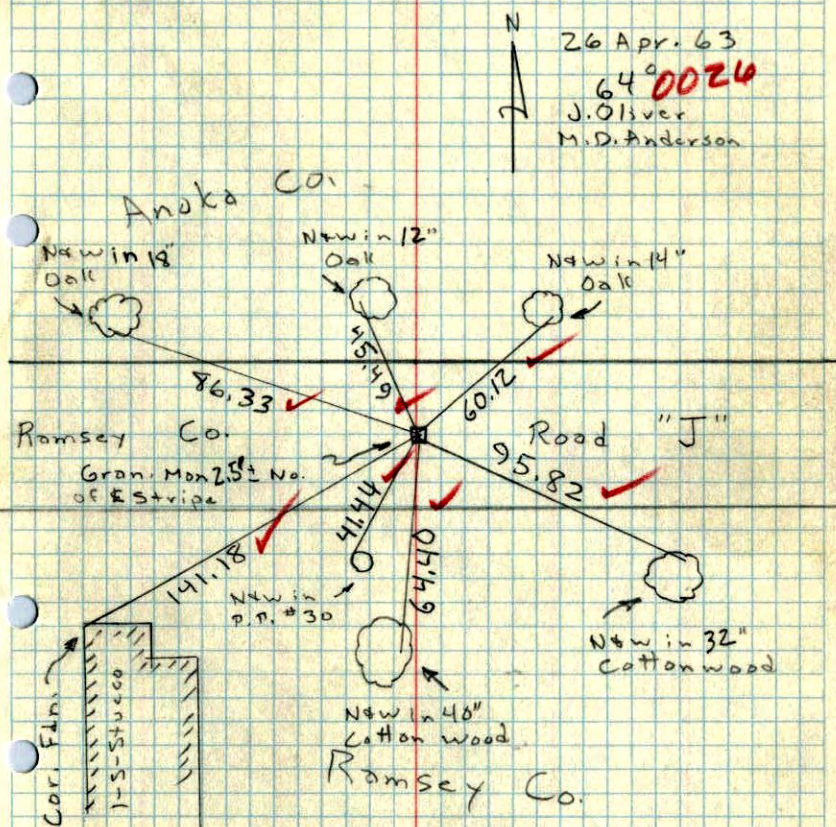 N
26 Apr. 63
64° 0026
J. Oliver
M.D. Anderson
Anoka Co.
N&W in 18"
Oak
N&W in 12"
Oak
N&W in 14"
Oak
86.33
45.49
60.12
Ramsey Co.
Road "J"
Gran. Mon 2.5'± No.
of ℄ Stripe
95.82
141.18
41.44
64.40
N&W in
P.P. #30
N&W in 32"
Cottonwood
N&W in 40"
Cotton wood
Cor. Fdn.
1-S-Stucco
Ramsey Co.